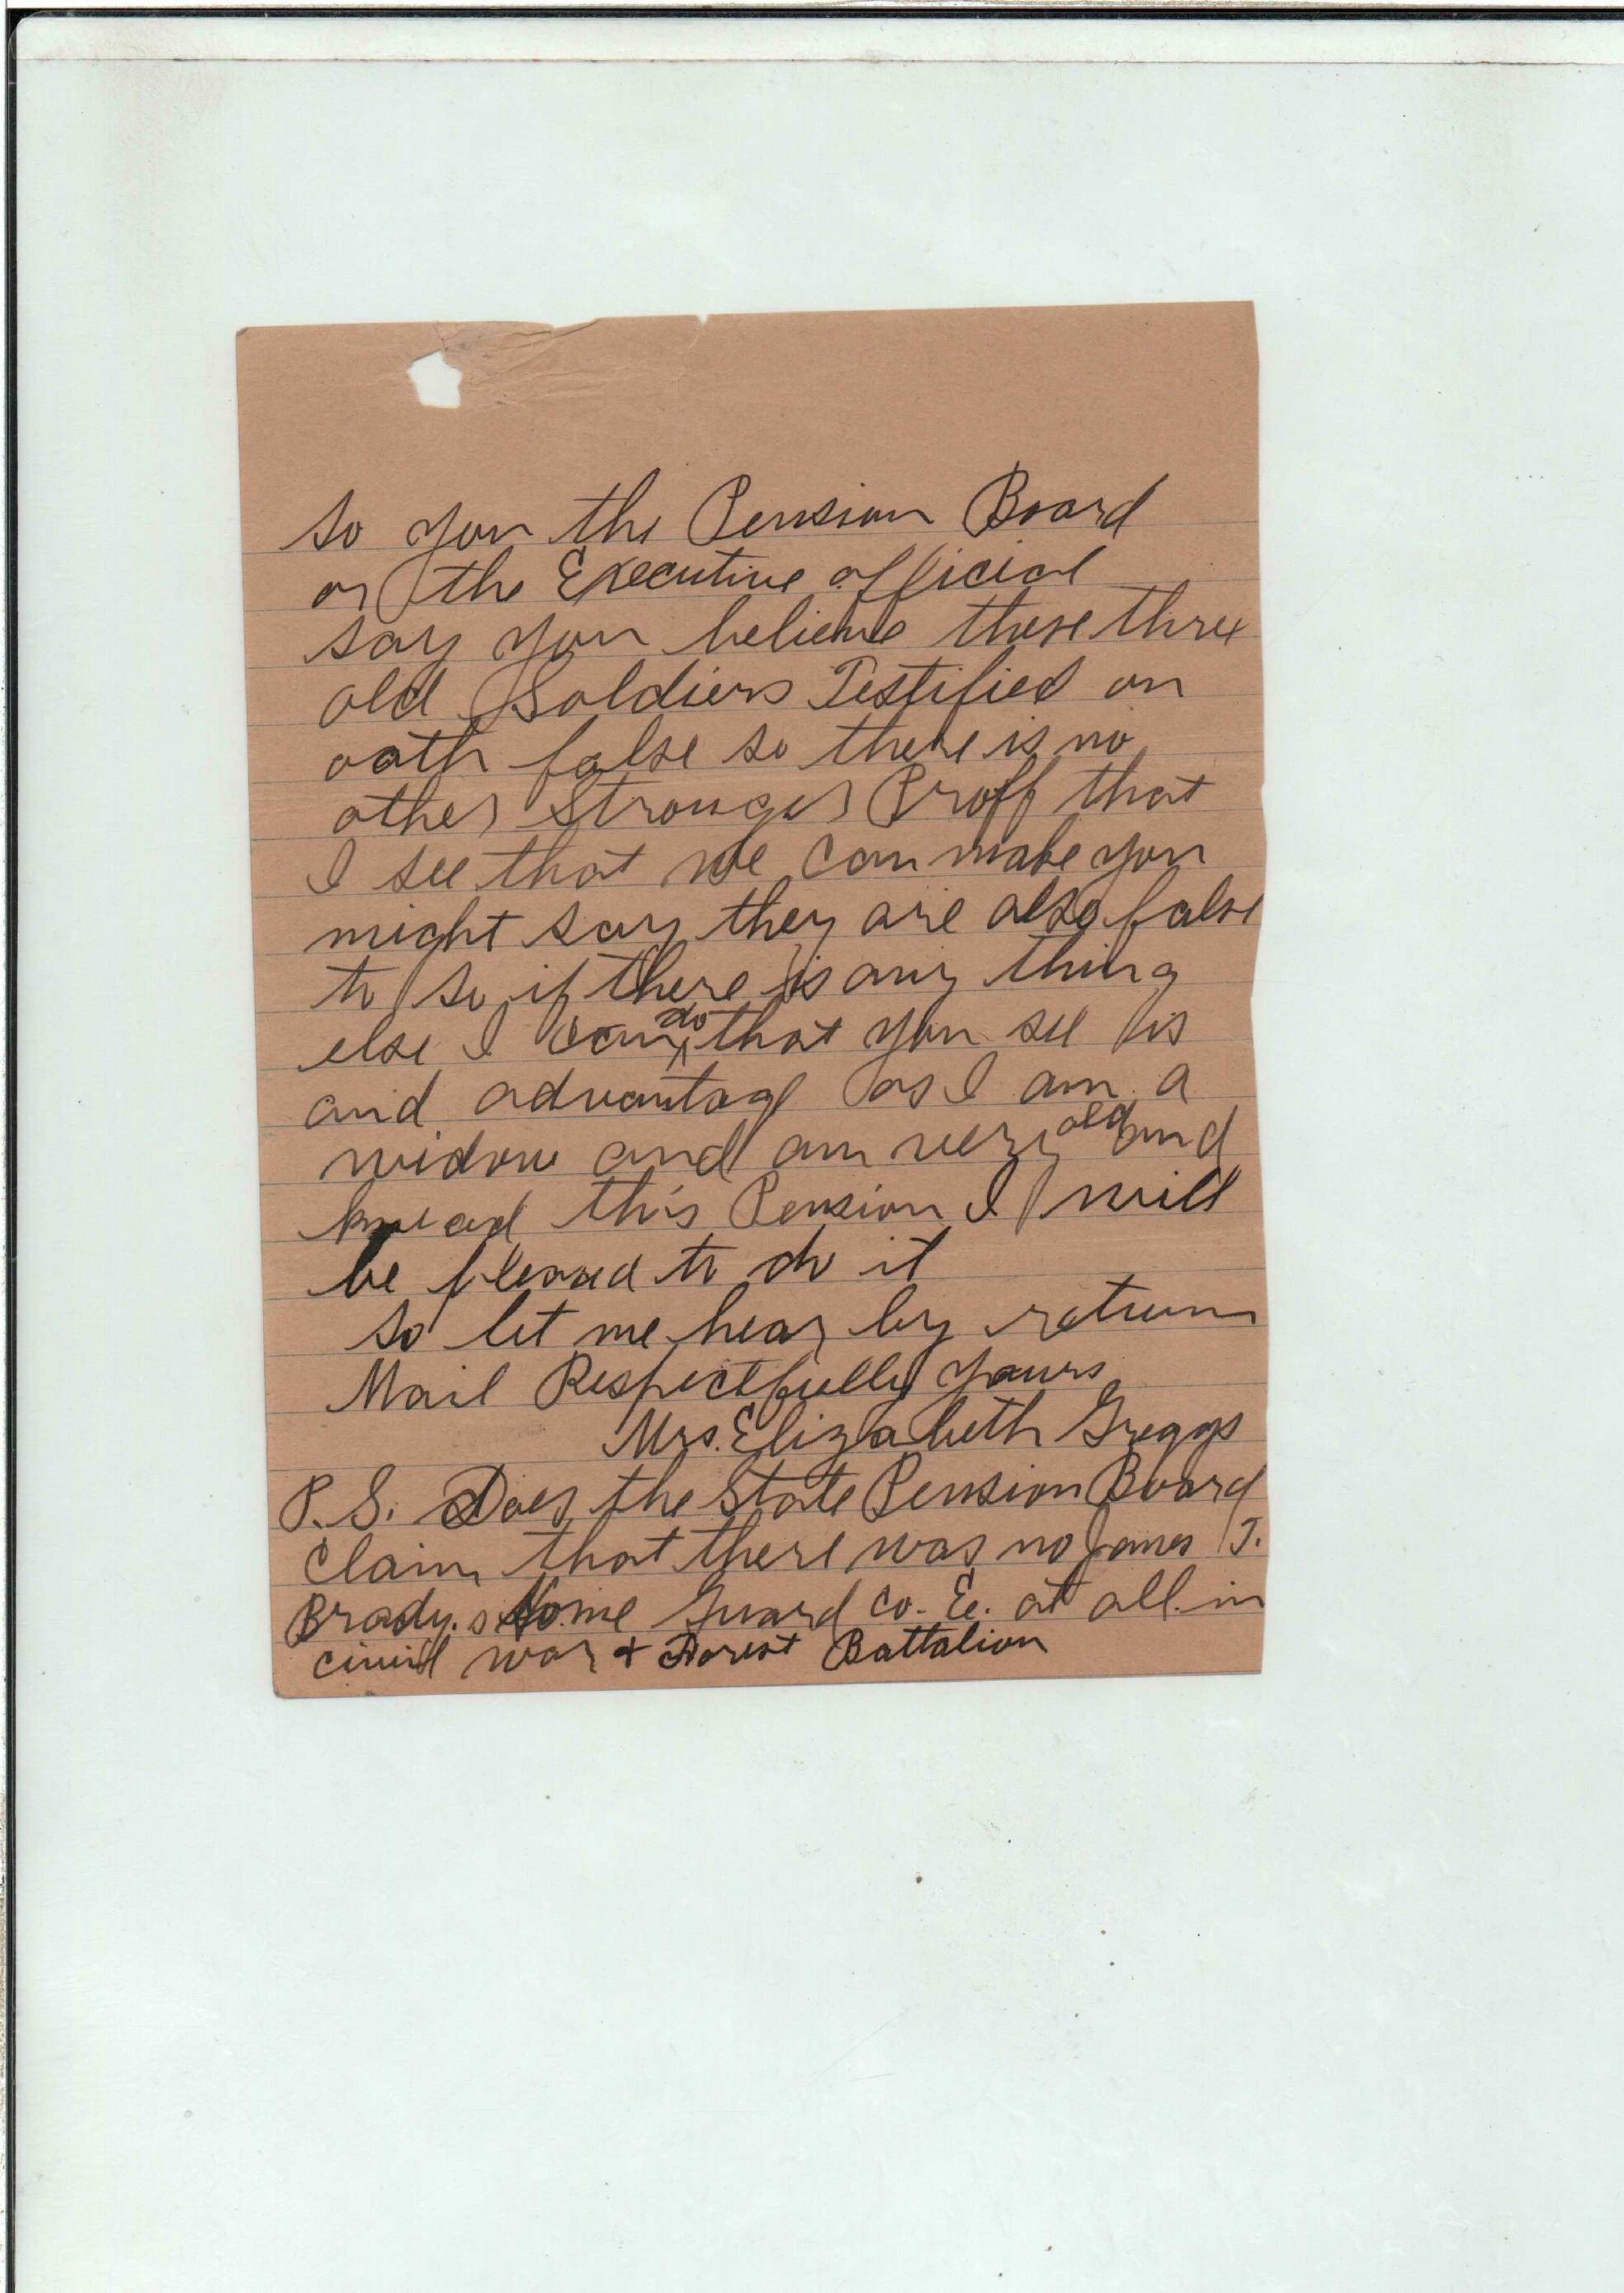 so you the Pension Board
or the Executive official
say you believe these three
old Soldiers Testified on
oath false so there is no
other Stronger Proff that
I see that we can make you
might say they are also false
to so if there is any thing
else I can do that you see is
and advantage as I am a
widow and am very old and
knead this Pension I will
be pleased to do it
so let me hear by return
Mail Respectfully yours
Mrs. Elizabeth Greggs
P.S. Does the State Pension Board
Claim that there was no James T.
Brady.s Home Guard Co. E. at all in
civil war + Forest Battalion